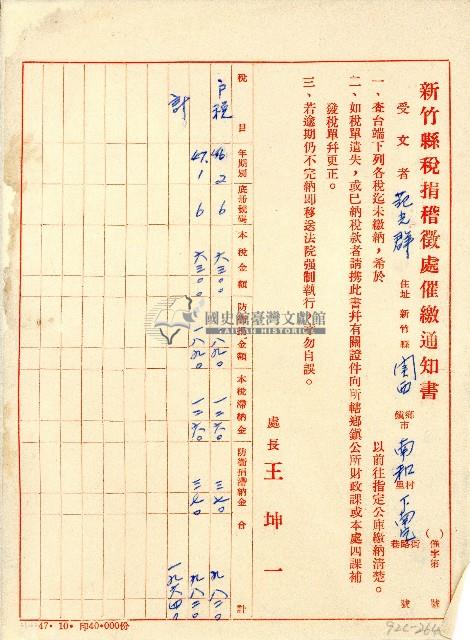 新竹縣稅捐稽徵處催繳通知書
( )催字第 號
受文者 范光群 住址 新竹縣 關西 鄉鎮市 南和 村里 下南片 街路巷 號
一、查台端下列各稅迄未繳納，希於 以前往指定公庫繳納清楚。
二、如稅單遺失，或已納稅款者請携此書幷有關證件向所轄鄉鎮公所財政課或本處四課補
發稅單幷更正。
三、若逾期仍不完納即移送法院强制執行 勿自誤。
處長 王坤一
稅目 年期別 底冊號碼 本稅金額 防衛捐金額 本稅滯納金 防衛捐滯納金 合計
戶稅 46. 2 6 六三〇〇 一八九〇 一二六〇 三七〇 九八二〇
47. 1 6 六三〇〇 一八九〇 一二六〇 三七〇 九八二〇
計 一九六四〇
47·10·印40·000份
國史館臺灣文獻館
TAIWAN HISTORICA
92C-264